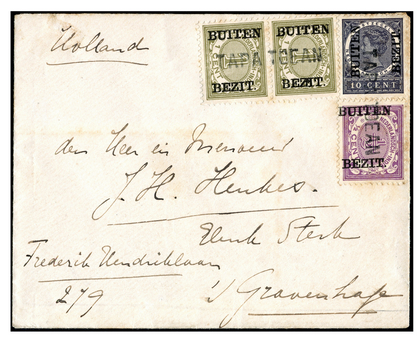 Holland
BUITEN BUITEN
TAPA TOEAN
BEZIT. BEZIT.
BUITEN BEZIT.
10 CENT
BUITEN
TOEAN
BEZIT.
den Heer en Mevrouw
J. H. Henkes.
Sterk
Frederik Hendriklaan
279
's Gravenhage